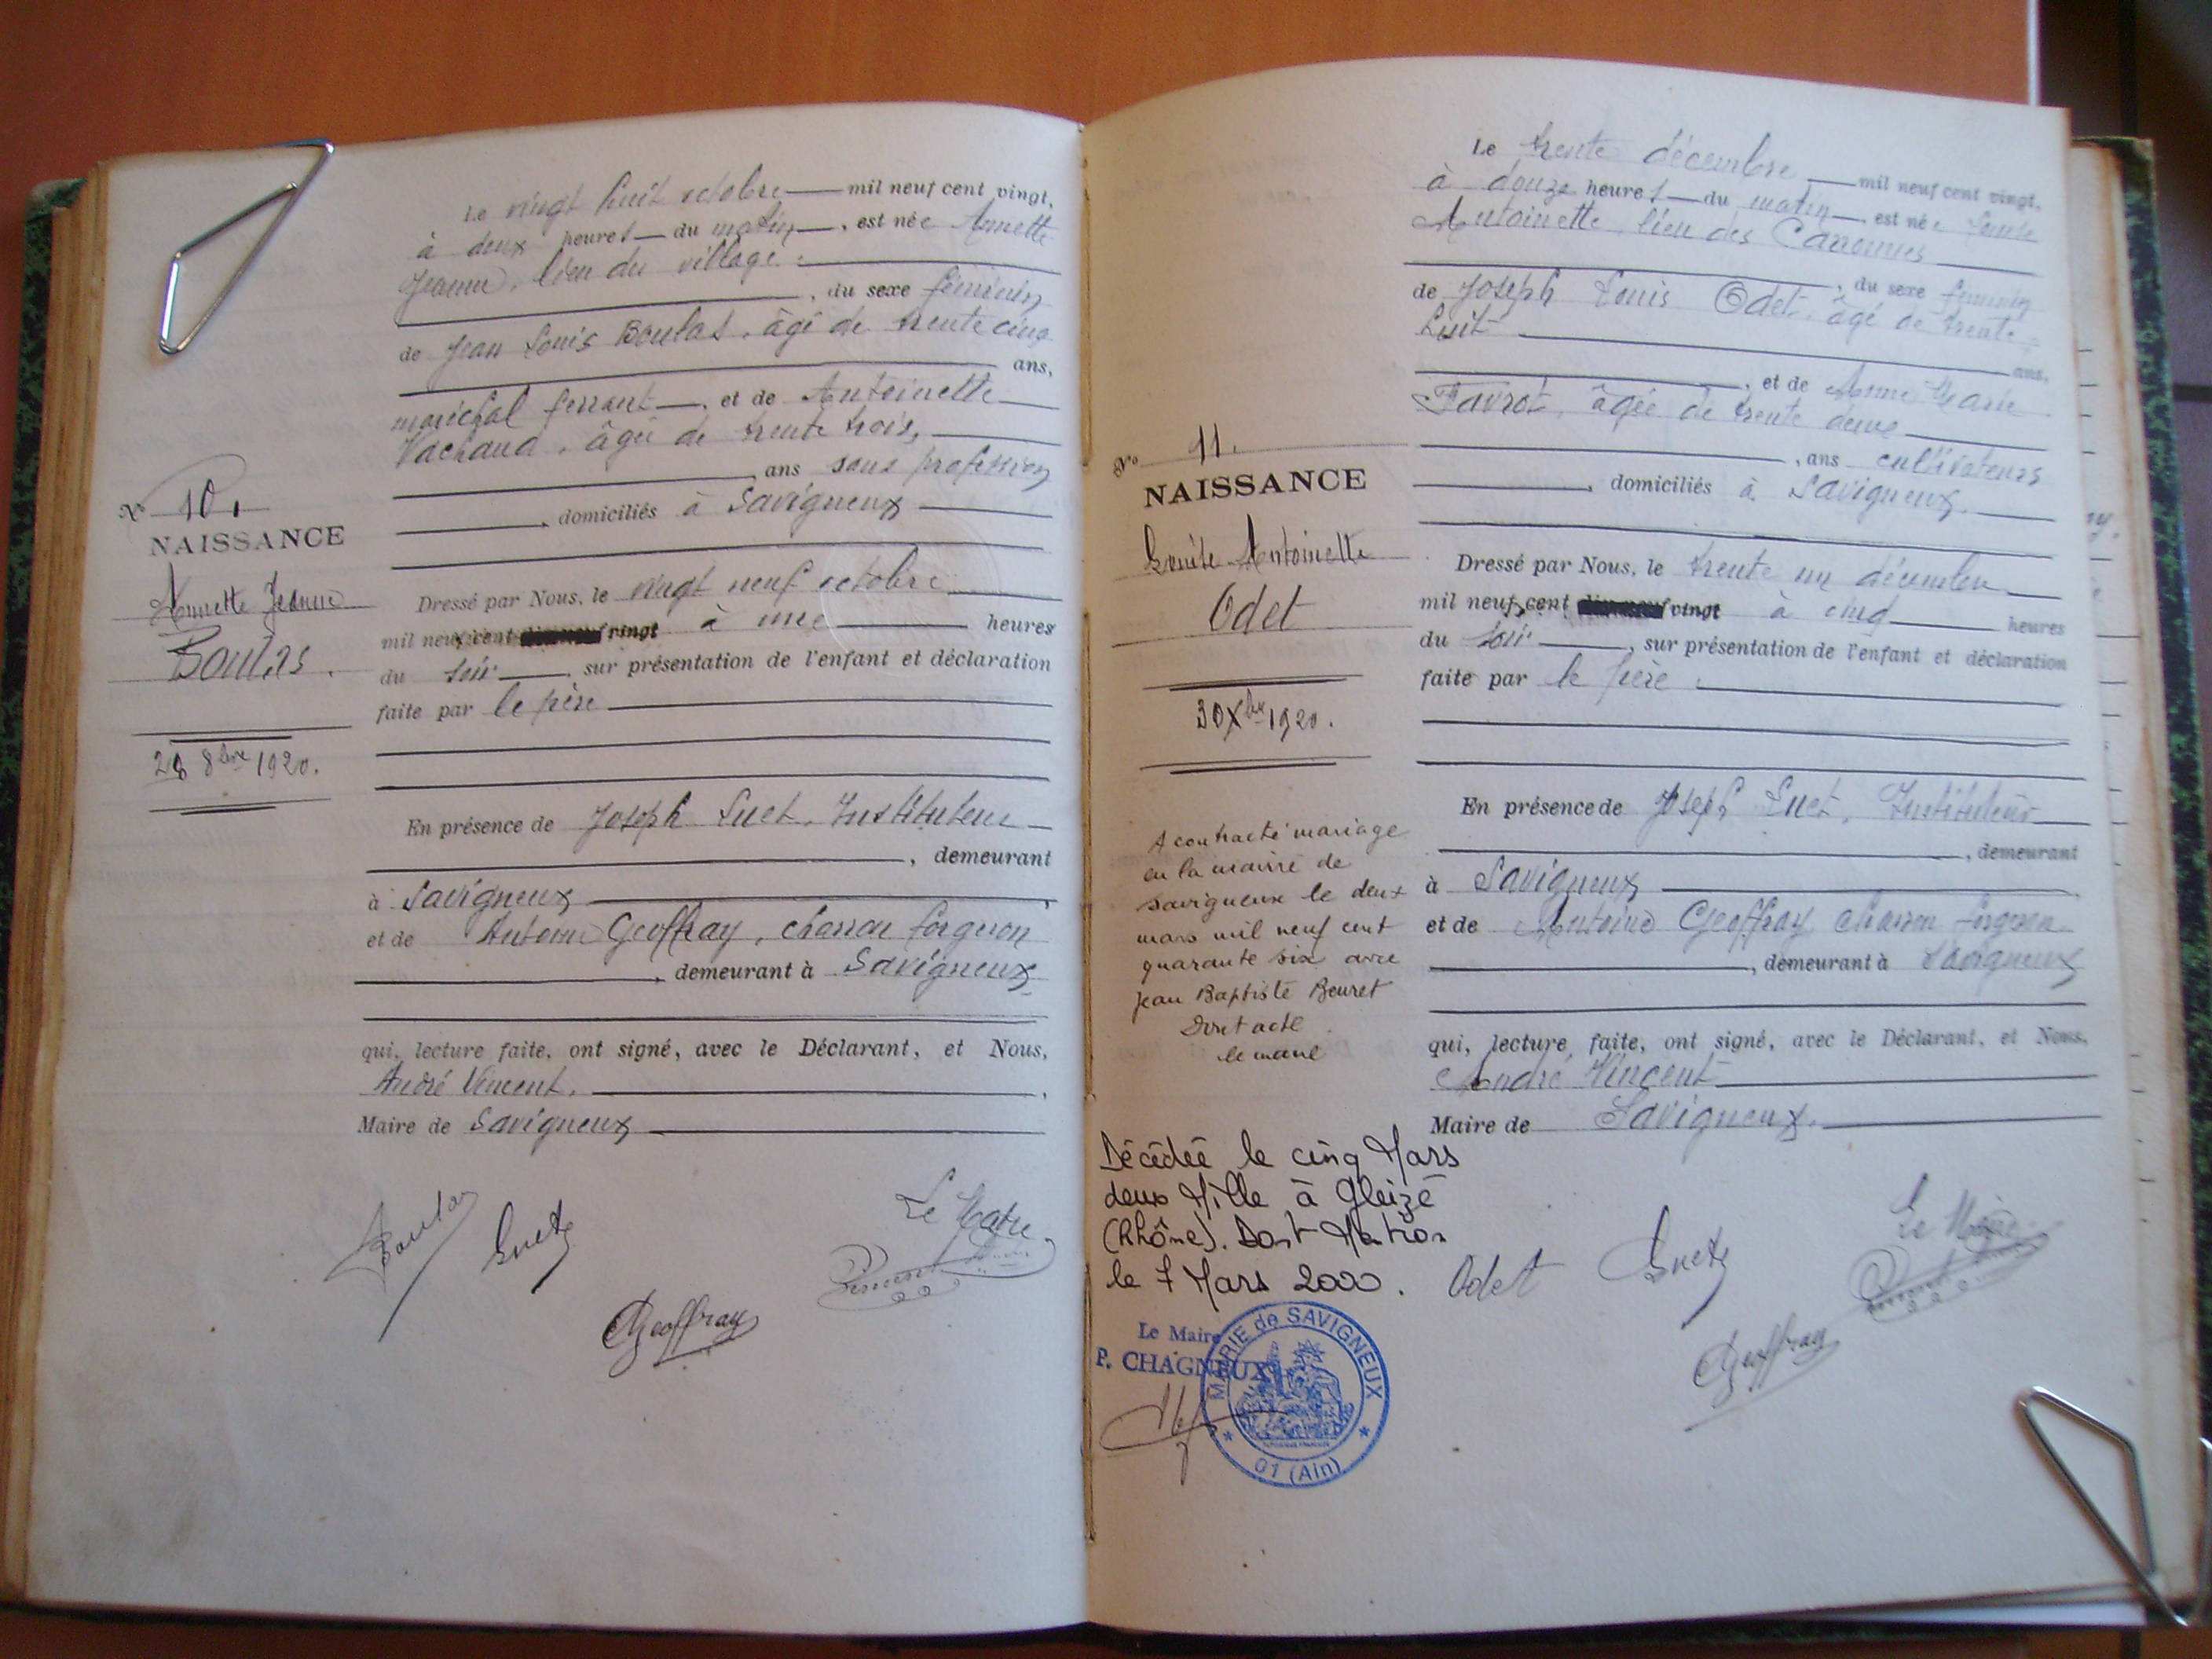 Le vingt huit octobre mil neuf cent vingt,
à deux heures du matin, est née Annette
Jeanne, lieu du village.
, du sexe féminin
de Jean Louis Boulas, âgé de trente cinq
ans,
maréchal ferrant, et de Antoinette
Vachaud, âgée de trente trois,
ans sans profession
, domiciliés à Savigneux
No 10.
NAISSANCE
Annette Jeanne
Boulas.
28 8bre 1920.
Dressé par Nous, le vingt neuf octobre
mil neuf cent vingt à une heures
du soir, sur présentation de l'enfant et déclaration
faite par le père
En présence de Joseph Suet, Instituteur
, demeurant
à Savigneux
et de Antoine Geoffray, charron forgeron
, demeurant à Savigneux
qui, lecture faite, ont signé, avec le Déclarant, et Nous,
André Vincent,
Maire de Savigneux
Boulas Suet Le Maire
Geoffray Vincent
Le trente décembre mil neuf cent vingt,
à douze heures du matin, est née Louise
Antoinette, lieu des
, du sexe féminin
de Joseph Louis Odet, âgé de trente
huit
ans,
, et de Anne Marie
Favrot, âgée de trente deux
, ans cultivateurs
, domiciliés à Savigneux.
No 11.
NAISSANCE
Louise Antoinette
Odet
30 Xbre 1920.
A contracté mariage
en la mairie de
Savigneux le deux
mars mil neuf cent
quarante six avec
Jean Baptiste Beuret
Dont acte
le maire
Décédée le cinq Mars
deux Mille à Gleizé
(Rhône). Dont Mention
le 7 Mars 2000.
Le Maire
P. CHAGNEUX
MAIRIE de SAVIGNEUX
01 (Ain)
Dressé par Nous, le trente un décembre
mil neuf cent vingt à cinq heures
du soir, sur présentation de l'enfant et déclaration
faite par le père.
En présence de Joseph Suet, Instituteur
, demeurant
à Savigneux
et de Antoine Geoffray charron forgeron
, demeurant à Savigneux
qui, lecture faite, ont signé, avec le Déclarant, et Nous,
André Vincent
Maire de Savigneux.
Odet Suet Le Maire
Geoffray Vincent